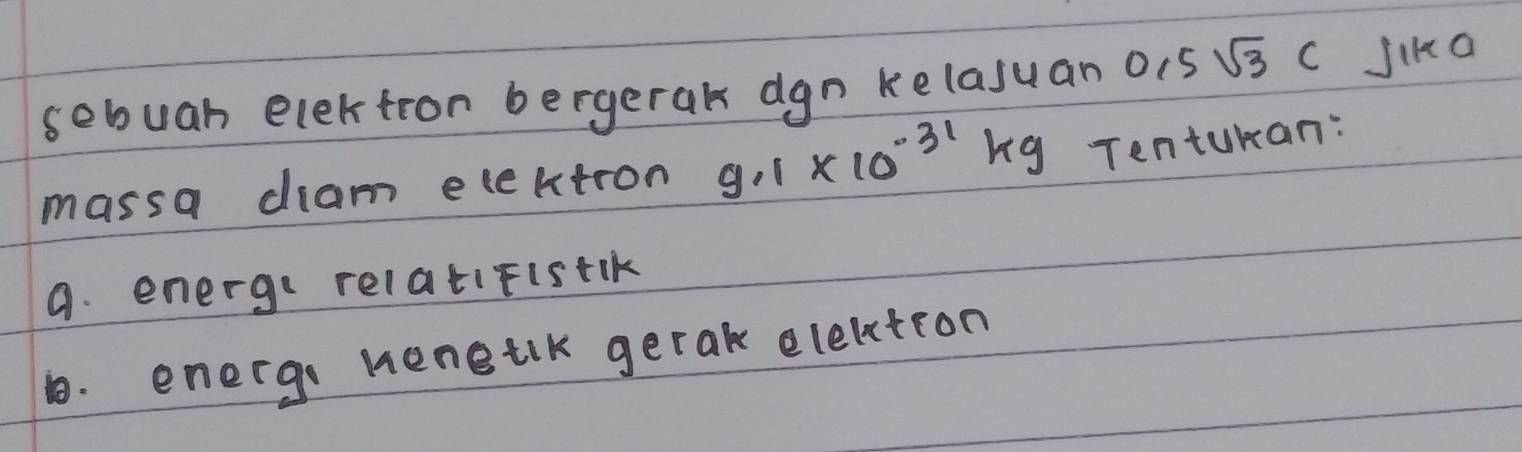 sebuah elektron bergerak dgn kelajuan 0,5 √3 c Jika
massa diam elektron 9,1 × 10⁻³¹ kg Tentukan:
a. energi relatifistik
b. energi kenetik gerak elektron